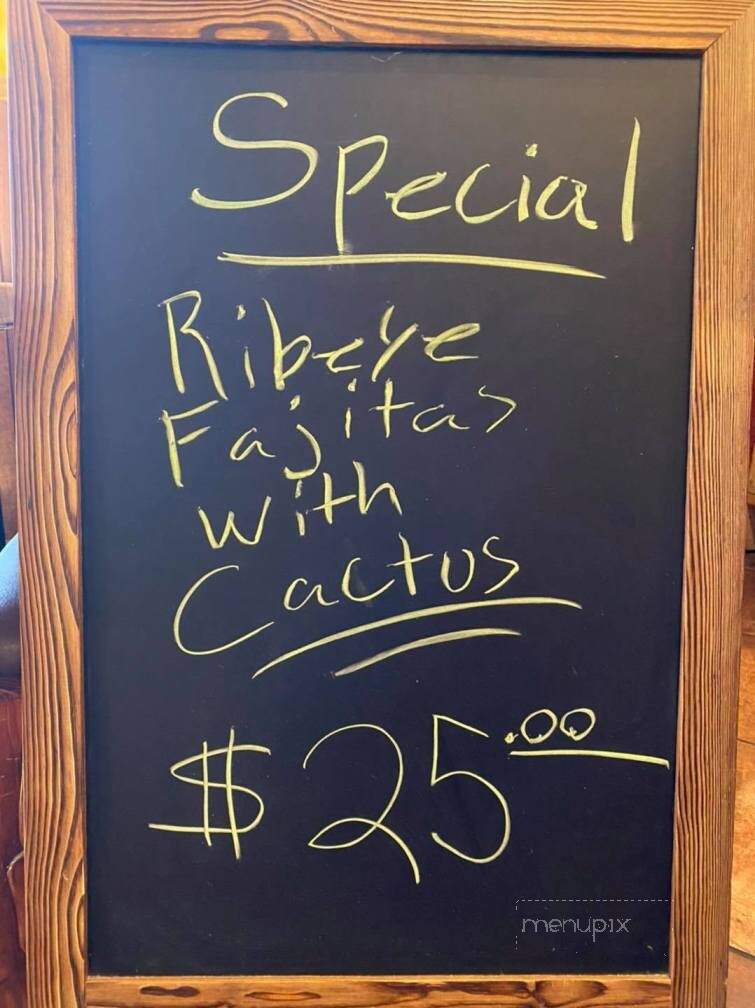 Special
Ribeye
Fajitas
with
Cactus
$25.00
menupix